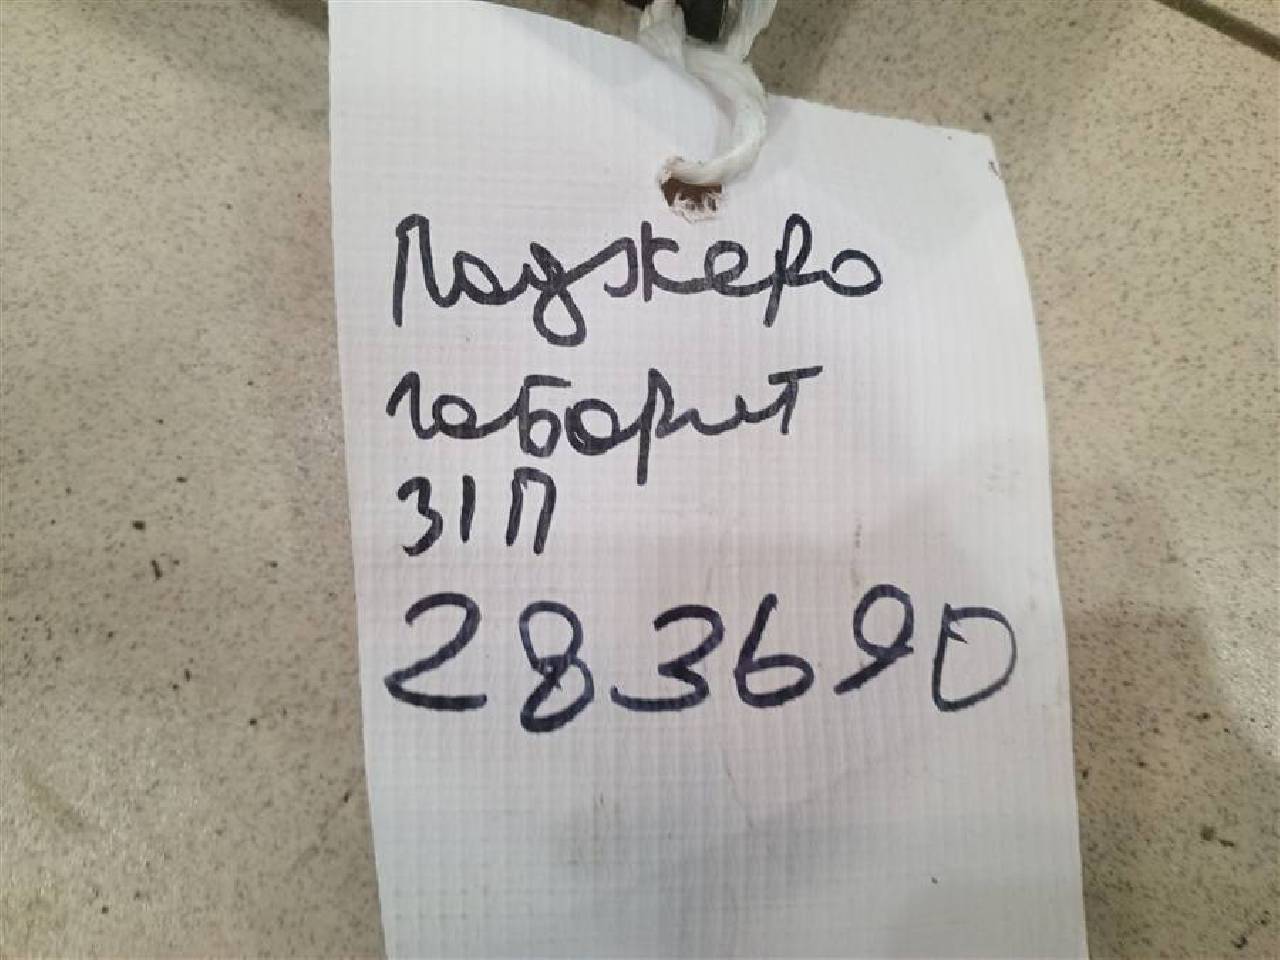 Паджеро
габарит
З1П
283690